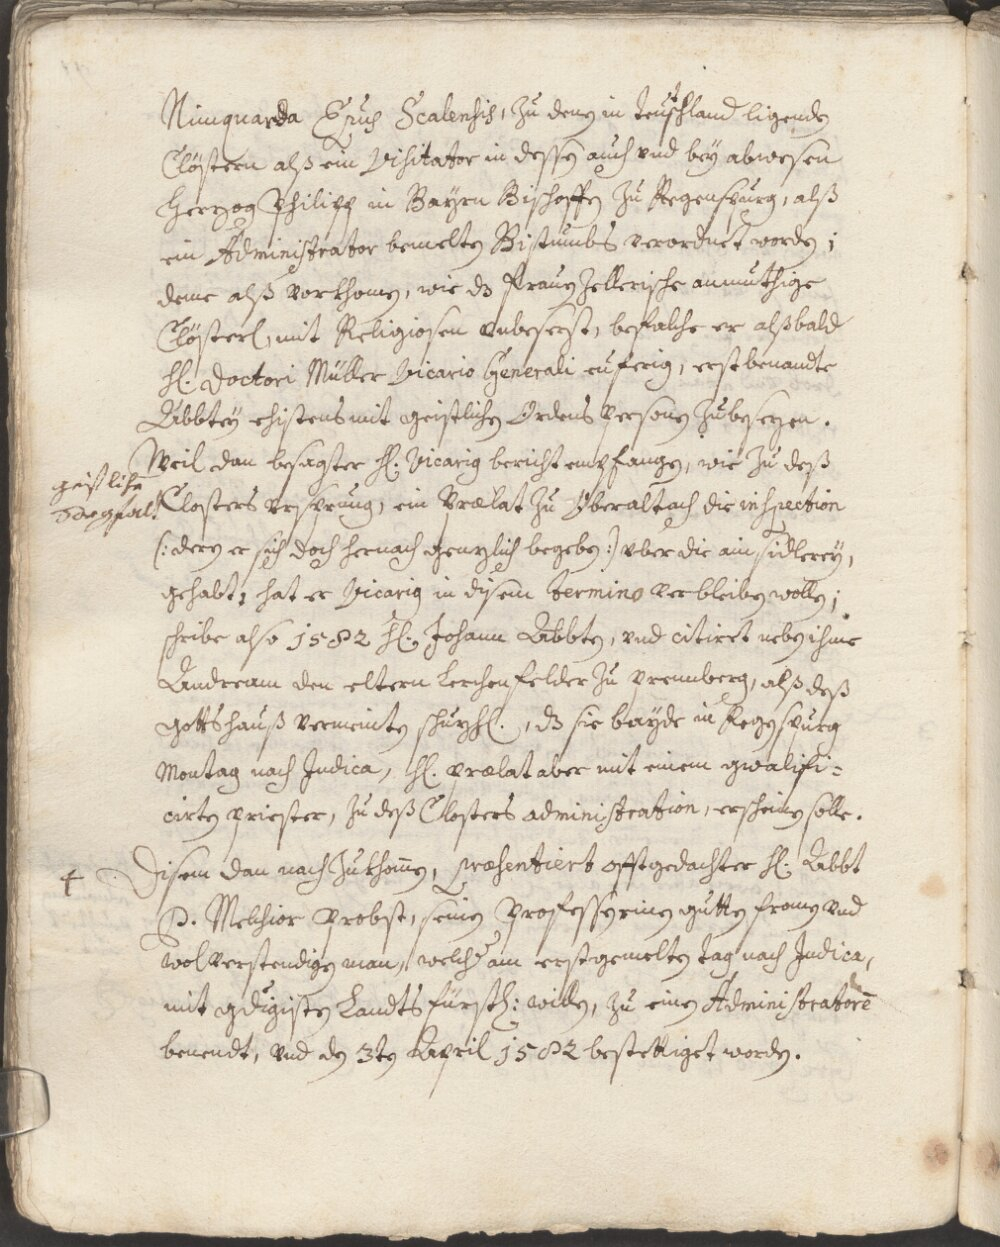 Nimquarda Epus Scalensis, zu deng in Teutschland ligenden
Clöstern alß ein Visitator in dessen auch vnd bey abwesen
Herzog Philipp in Bayrn Bischoffen zu Regenspurg, alß
ein Administrator bemelten Bistumbs verordnet worden;
deme alß vorkhomen, wie dz Frauen Zellerische anmuthige
Clösterl, mit Religiosen vnbesezt, befalche er alßbald
H. Doctori Müller Vicario Generali euferig, erstbenandte
Abbtey ehistens mit geistlichen Ordens Personen zubesezen.
Weil dan besagter H. Vicarig bericht empfangen, wie zu deß
geistliche
Closters vrsprung, ein Prælat zu Oberaltach die inspection
(: deren er sich doch hernach genzlich begeben :) vber die ainsidlerey,
gehabt, hat er Vicarig in disem termino verbleiben wollen;
schribe also 1582 H. Johann Abbten, vnd citiret neben ihme
Andream den eltern Lerchenfelder zu Prennberg, alß deß
Gottshauß vermeinten schuzh., dz sie bayde in Regenspurg
Montag nach Judica, H. Prælat aber mit einem qwalifi-
cirten Priester, zu deß Closters administration, erscheinen solle.
4 Disem dan nach zukhomen, præsentiert offtgedachter H. Abbt
P. Melchior Probst, seinen Professen einen gutten fromen vnd
wolverstendigen man, welcher am erstgemelten tag nach Judica,
mit gdigisten Landtsfürstl: willen, zu einen Administratorē
benendt, vnd den 3ten April 1582 bestettiget worden.